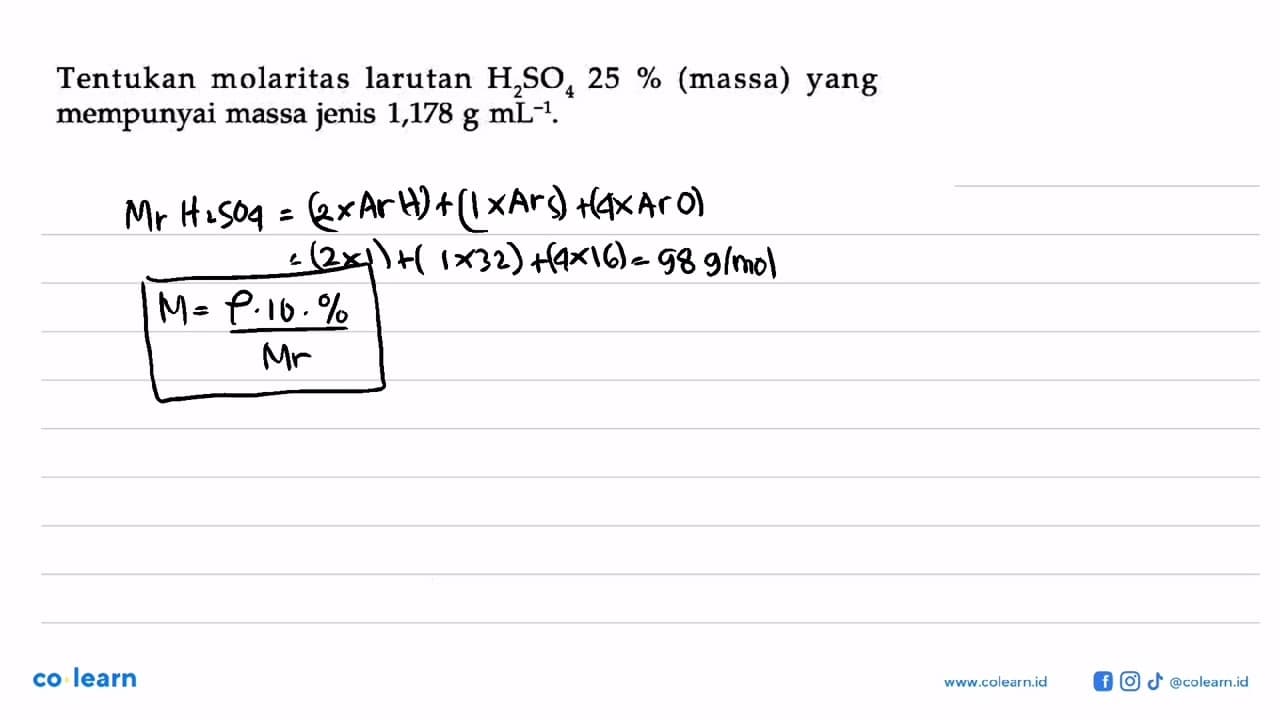 Tentukan molaritas larutan H₂SO₄ 25 % (massa) yang
mempunyai massa jenis 1,178 g mL⁻¹.
Mr H₂SO₄ = (2 × Ar H) + (1 × Ar S) + (4 × Ar O)
= (2×1) + (1×32) + (4×16) = 98 g/mol
M = ρ . 10 . %
Mr
co learn
www.colearn.id
@colearn.id